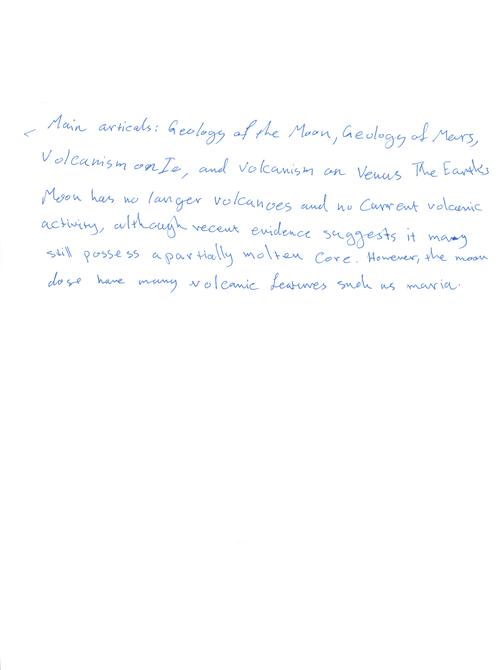 Main articals: Geology of the Moon, Geology of Mars,
Volcanism on Io, and volcanism on Venus The Earth's
Moon has no langer volcanoes and no Current volcanic
activity, although recent evidence suggests it many
still possess a partially molten core. However, the moon
dose have many volcanic features such as maria.